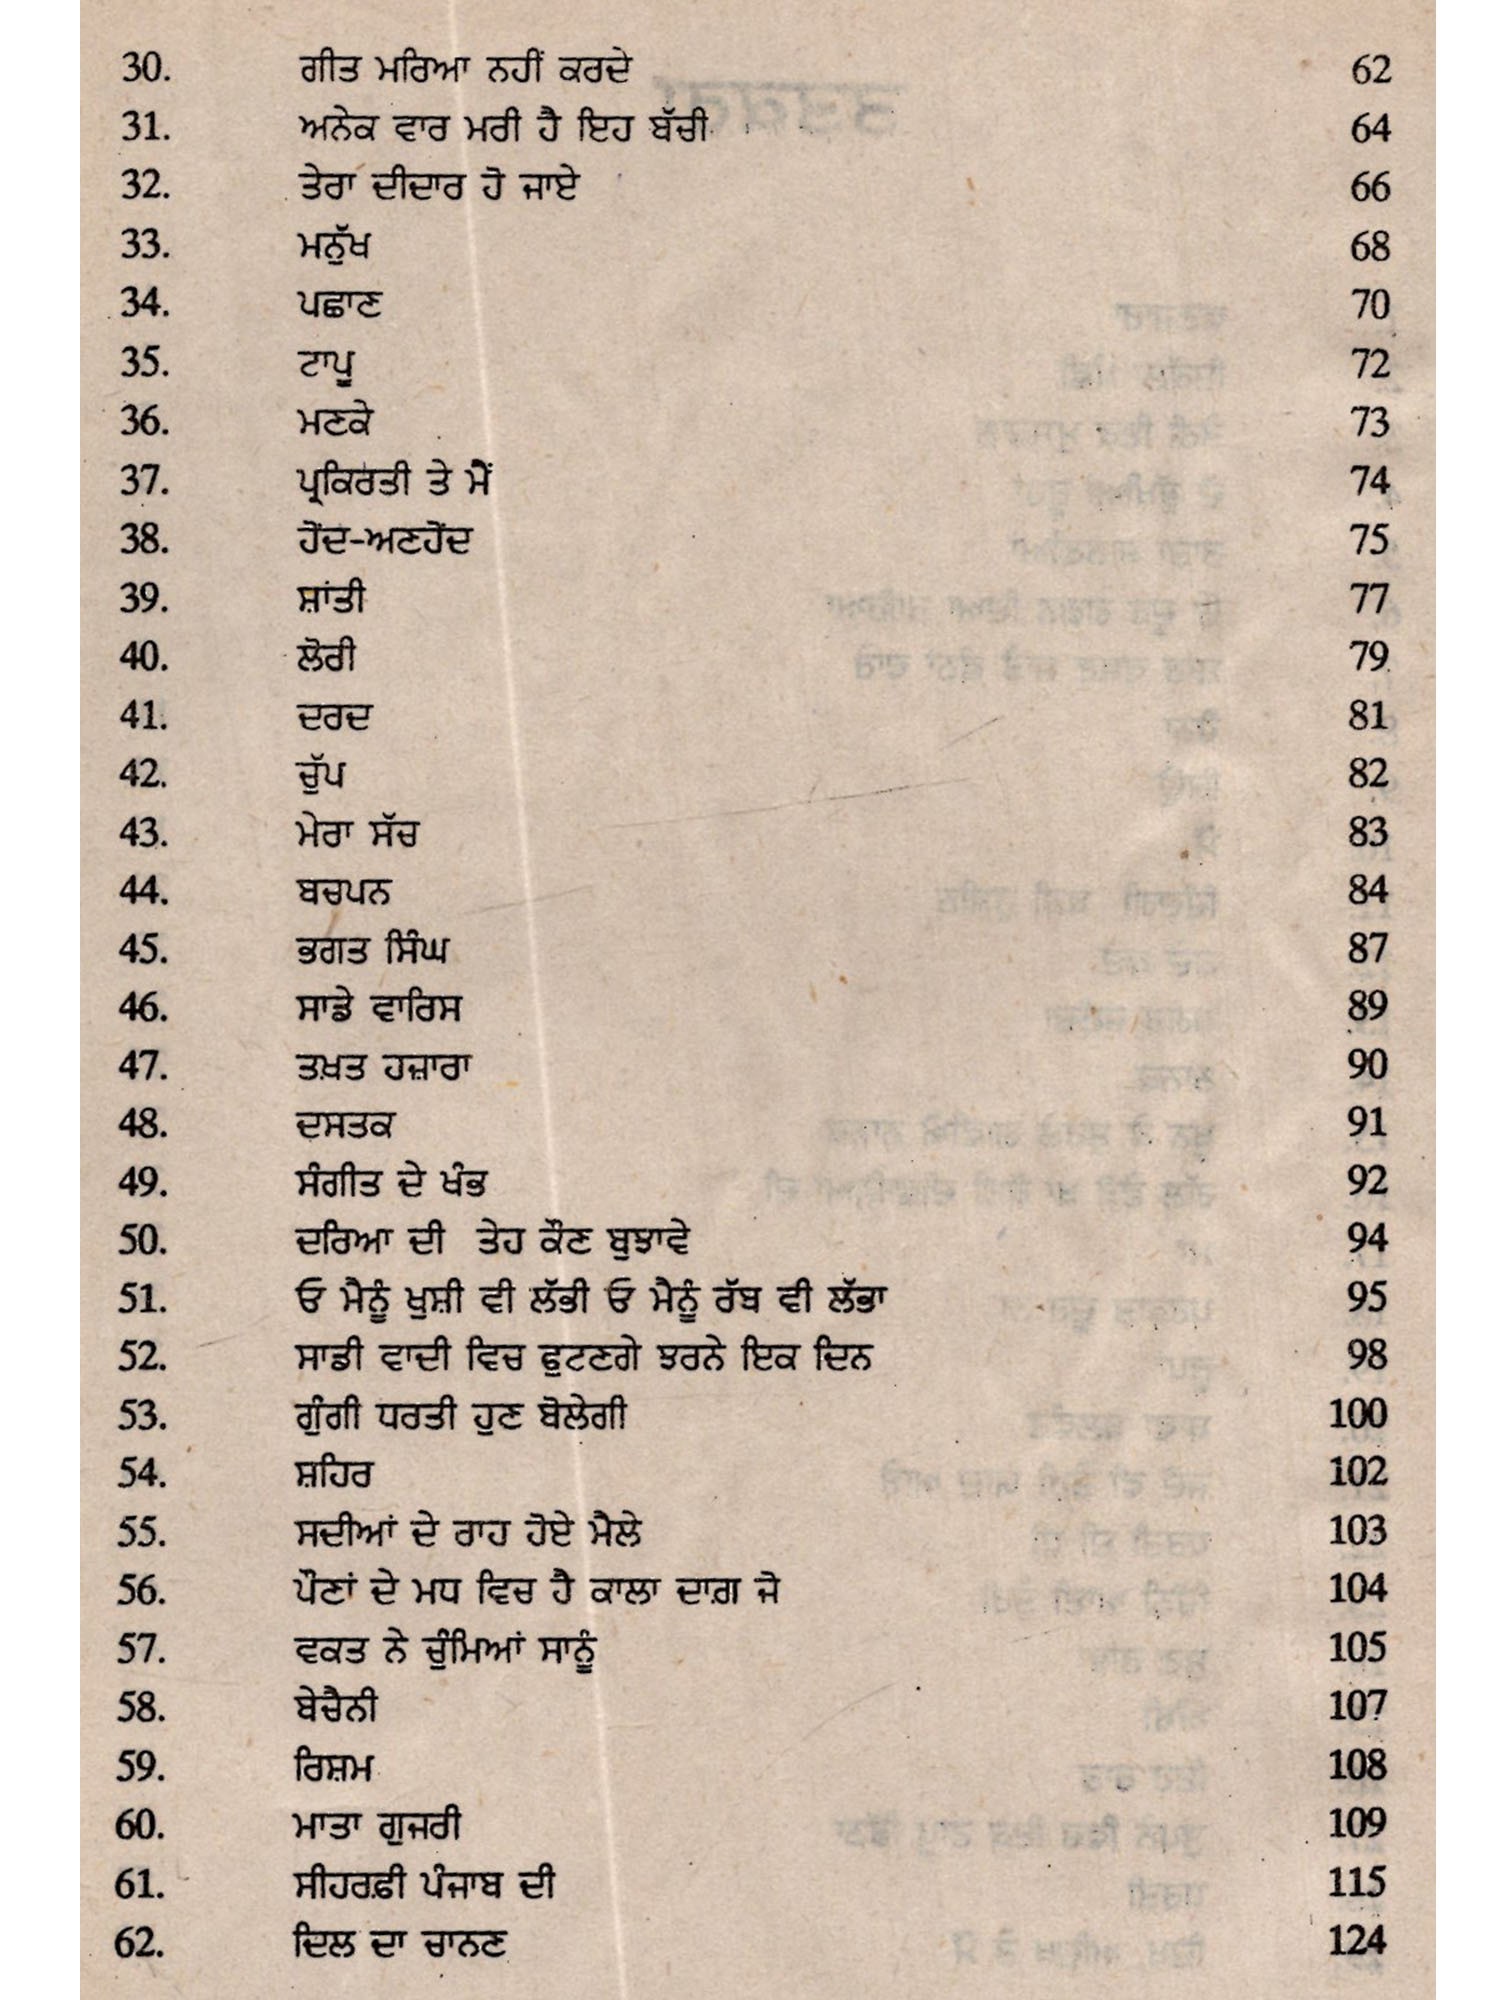 30. ਗੀਤ ਮਰਿਆ ਨਹੀਂ ਕਰਦੇ 62
31. ਅਨੇਕ ਵਾਰ ਮਰੀ ਹੈ ਇਹ ਬੱਚੀ 64
32. ਤੇਰਾ ਦੀਦਾਰ ਹੋ ਜਾਏ 66
33. ਮਨੁੱਖ 68
34. ਪਛਾਣ 70
35. ਟਾਪੂ 72
36. ਮਣਕੇ 73
37. ਪ੍ਰਕਿਰਤੀ ਤੇ ਮੈਂ 74
38. ਹੋਂਦ-ਅਣਹੋਂਦ 75
39. ਸ਼ਾਂਤੀ 77
40. ਲੋਰੀ 79
41. ਦਰਦ 81
42. ਚੁੱਪ 82
43. ਮੇਰਾ ਸੱਚ 83
44. ਬਚਪਨ 84
45. ਭਗਤ ਸਿੰਘ 87
46. ਸਾਡੇ ਵਾਰਿਸ 89
47. ਤਖ਼ਤ ਹਜ਼ਾਰਾ 90
48. ਦਸਤਕ 91
49. ਸੰਗੀਤ ਦੇ ਖੰਭ 92
50. ਦਰਿਆ ਦੀ ਤੇਹ ਕੌਣ ਬੁਝਾਵੇ 94
51. ਓ ਮੈਨੂੰ ਖੁਸ਼ੀ ਵੀ ਲੱਭੀ ਓ ਮੈਨੂੰ ਰੱਬ ਵੀ ਲੱਭਾ 95
52. ਸਾਡੀ ਵਾਦੀ ਵਿਚ ਫੁਟਣਗੇ ਝਰਨੇ ਇਕ ਦਿਨ 98
53. ਗੁੰਗੀ ਧਰਤੀ ਹੁਣ ਬੋਲੇਗੀ 100
54. ਸ਼ਹਿਰ 102
55. ਸਦੀਆਂ ਦੇ ਰਾਹ ਹੋਏ ਮੈਲੇ 103
56. ਪੌਣਾਂ ਦੇ ਮਧ ਵਿਚ ਹੈ ਕਾਲਾ ਦਾਗ਼ ਜੋ 104
57. ਵਕਤ ਨੇ ਚੁੰਮਿਆਂ ਸਾਨੂੰ 105
58. ਬੇਚੈਨੀ 107
59. ਰਿਸ਼ਮ 108
60. ਮਾਤਾ ਗੁਜਰੀ 109
61. ਸੀਹਰਫ਼ੀ ਪੰਜਾਬ ਦੀ 115
62. ਦਿਲ ਦਾ ਚਾਨਣ 124